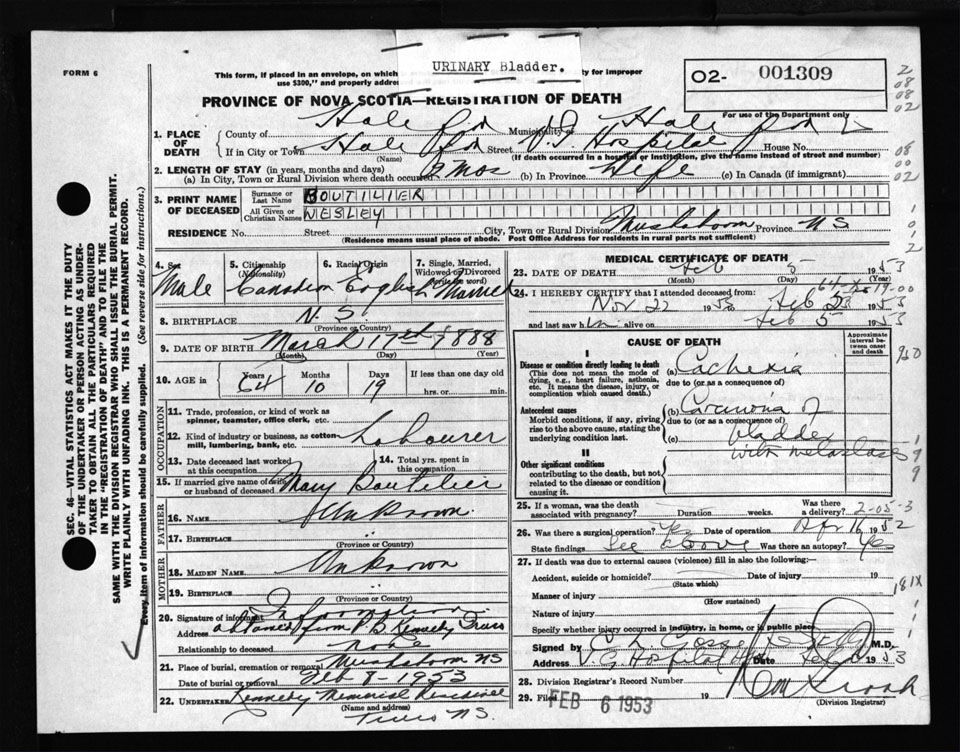 URINARY Bladder.
FORM 6
This form, if placed in an envelope, on which
ty for improper
use $300," and properly addre
02- 001309
For use of the Department only
PROVINCE OF NOVA SCOTIA—REGISTRATION OF DEATH
1. PLACE OF DEATH
County of Municipality
If in City or Town Street V.G. Hospital House No.
(Name) (If death occurred in a hospital or institution, give the name instead of street and number)
2. LENGTH OF STAY (in years, months and days)
(a) In City, Town or Rural Division where death occurred mos (b) In Province Life (c) In Canada (if immigrant)
3. PRINT NAME OF DECEASED
Surname or Last Name BOUTILIER
All Given or Christian Names WESLEY
RESIDENCE No. Street City, Town or Rural Division N.S.
(Residence means usual place of abode. Post Office Address for residents in rural parts not sufficient)
SEC. 46—VITAL STATISTICS ACT MAKES IT THE DUTY
OF THE UNDERTAKER OR PERSON ACTING AS UNDER-
TAKER TO OBTAIN ALL THE PARTICULARS REQUIRED
IN THE "REGISTRATION OF DEATH" AND TO FILE THE
SAME WITH THE DIVISION REGISTRAR WHO SHALL ISSUE THE BURIAL PERMIT.
WRITE PLAINLY WITH UNFADING INK. THIS IS A PERMANENT RECORD.
Every item of information should be carefully supplied. (See reverse side for instructions.)
4. Sex Male
5. Citizenship (Nationality) Canadian
6. Racial Origin English
7. Single, Married, Widowed or Divorced (write the word) Married
8. BIRTHPLACE N.S.
(Province or Country)
9. DATE OF BIRTH March 17th 1888
(Month) (Day) (Year)
10. AGE in Years 64 Months 10 Days 19 If less than one day old
hrs. or min.
OCCUPATION
11. Trade, profession, or kind of work as
spinner, teamster, office clerk, etc.
12. Kind of industry or business, as cotton-
mill, lumbering, bank, etc. Labourer
13. Date deceased last worked
at this occupation
14. Total yrs. spent in
this occupation
15. If married give name of wife
or husband of deceased Mary Boutilier
FATHER
16. NAME Unknown
17. BIRTHPLACE
(Province or Country)
MOTHER
18. MAIDEN NAME Unknown
19. BIRTHPLACE
(Province or Country)
20. Signature of informant Information
Address obtained from P.B. Kennedy Truro
Relationship to deceased none
21. Place of burial, cremation or removal NS
Date of burial or removal Feb 8-1953
22. UNDERTAKER Kennedy Memorial Residence
(Name and address)
Truro N.S.
MEDICAL CERTIFICATE OF DEATH
23. DATE OF DEATH Feb 5 1953
(Month) (Day) (Year)
24. I HEREBY CERTIFY that I attended deceased from
Nov 22 Feb 5 1953
and last saw him alive on Feb 5 1953
CAUSE OF DEATH
Approximate interval between onset and death
I
Disease or condition directly leading to death
(This does not mean the mode of
dying, e.g., heart failure, asthenia,
etc. It means the disease, injury, or
complication which caused death.)
(a) Cachexia
due to (or as a consequence of)
Antecedent causes
Morbid conditions, if any, giving
rise to the above cause, stating the
underlying condition last.
(b) Carcinoma of
due to (or as a consequence of)
(c) bladder
with metastases
II
Other significant conditions
contributing to the death, but not
related to the disease or condition
causing it.
25. If a woman, was the death
associated with pregnancy? Duration weeks. Was there a delivery?
26. Was there a surgical operation? Yes Date of operation Apr 16 1952
State findings See above Was there an autopsy? Yes
27. If death was due to external causes (violence) fill in also the following:—
Accident, suicide or homicide? Date of injury 19
(State which)
Manner of injury
(How sustained)
181X
Nature of injury
Specify whether injury occurred in industry, in home, or in public place
Signed by M.D.
Address V.G. Hospital Date 1953
28. Division Registrar's Record Number
29. Filed FEB 6 1953 19
(Division Registrar)